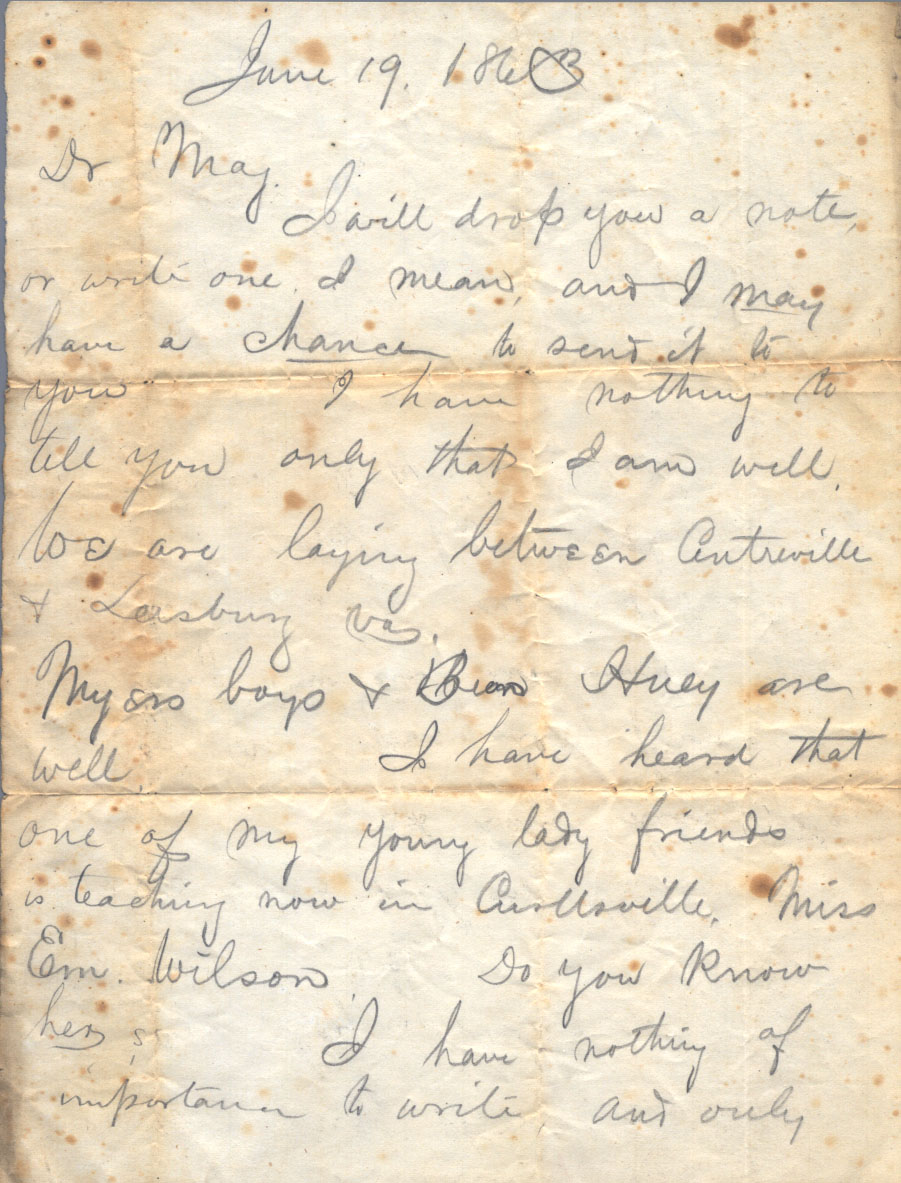 June 19, 1863
Dr May.
I will drop you a note,
or write one I mean, and I may
have a chance to send it to
you I have nothing to
tell you only that I am well.
We are laying between Centreville
& Leesburg Va.
Myers boys & Huey are
well. I have heard that
one of my young lady friends
is teaching now in Curllsville, Miss
Em. Wilson. Do you know
her
I have nothing of
importance to write and only